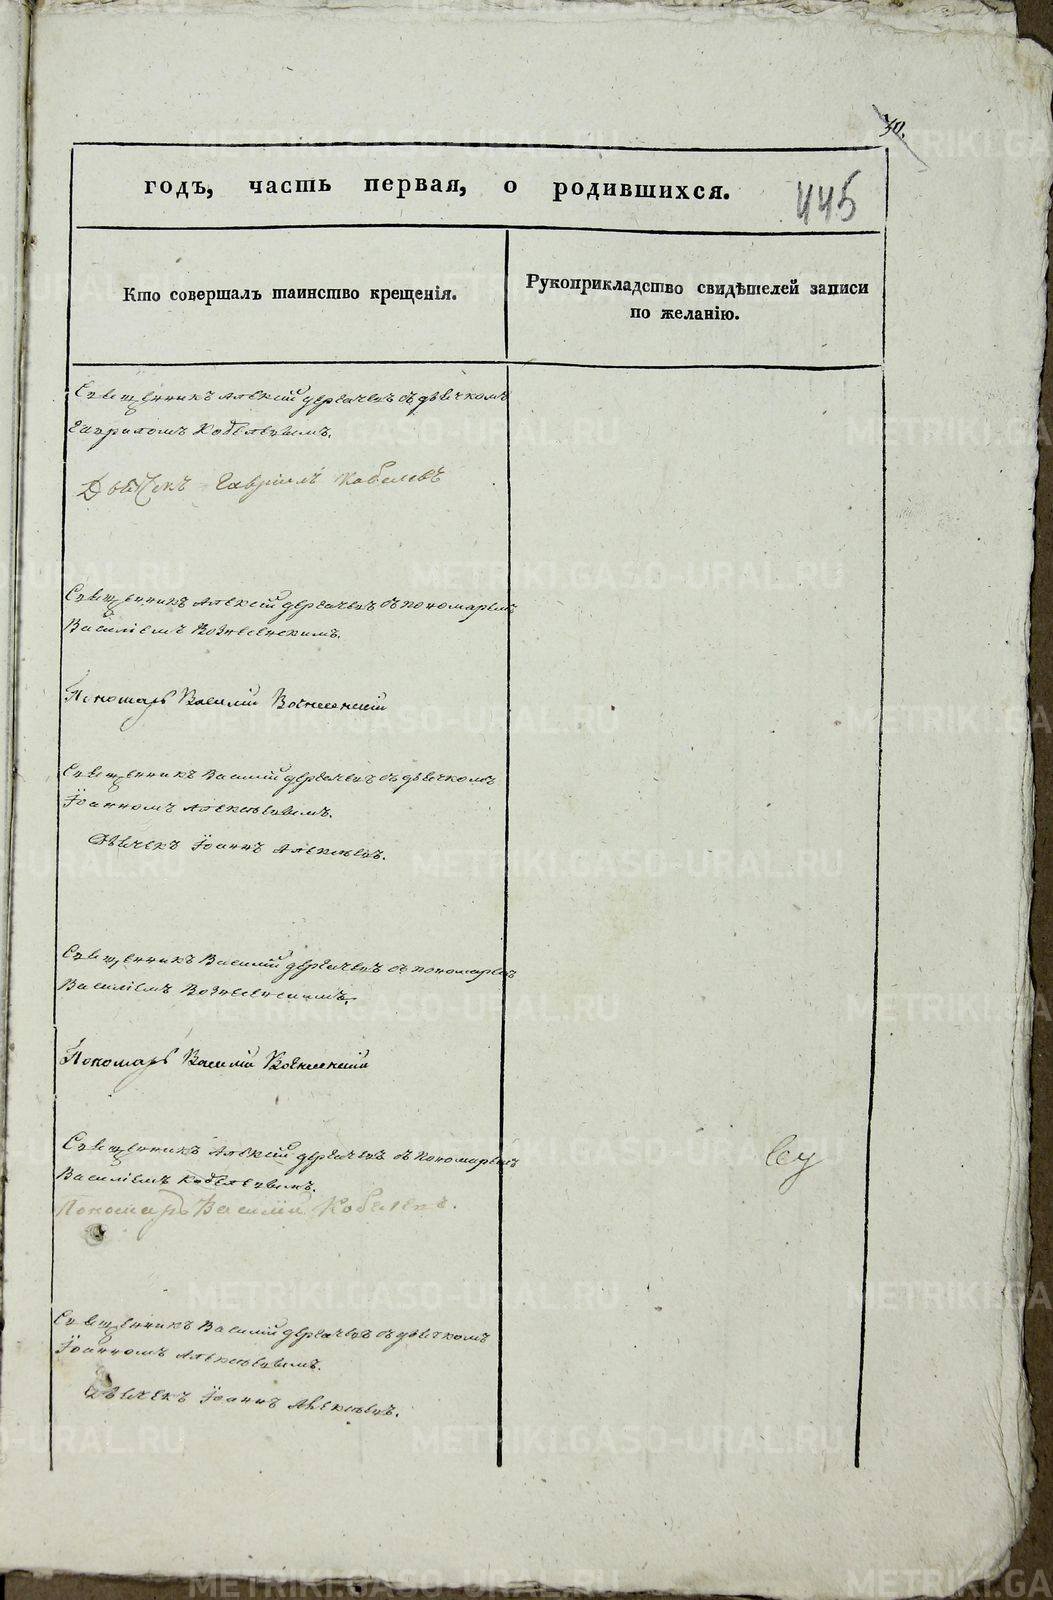 30.
годъ, часть первая, о родившихся.
445
Кто совершалъ таинство крещенія.
Рукоприкладство свидѣтелей записи
по желанію.
Священникъ Алексій Дергачевъ съ дьячкомъ
Гавриломъ Кобелевымъ.
Дьячекъ Гавріилъ Кобелевъ
Священникъ Алексій Дергачевъ съ пономаремъ
Василіемъ Вознесенскимъ.
Пономарь Василій Вознесенскій
Священникъ Василій Дергачевъ съ дьячкомъ
Іоанномъ Алексѣевымъ.
Дьячекъ Іоаннъ Алексѣевъ.
Священникъ Василій Дергачевъ съ пономаремъ
Василіемъ Вознесенскимъ.
Пономарь Василій Вознесенскій
Священникъ Алексій Дергачевъ съ пономаремъ
Василіемъ Кобелевымъ.
Пономарь Василій Кобелевъ.
Священникъ Василій Дергачевъ съ дьячкомъ
Іоанномъ Алексѣевымъ.
Дьячекъ Іоаннъ Алексѣевъ.
METRIKI.GASO-URAL.RU